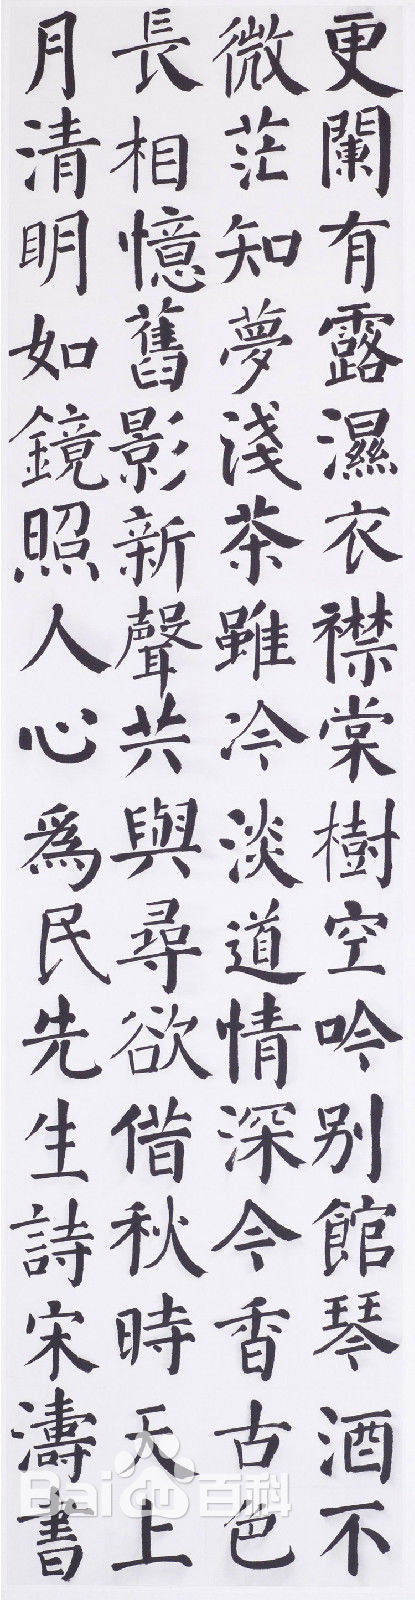 更闌有露濕衣襟棠樹空吟别館琴酒不
微茫知夢淺茶雖冷淡道情深今香古色
長相憶舊影新聲共與尋欲借秋時天上
月清明如鏡照人心為民先生詩宋濤書
Bai百科